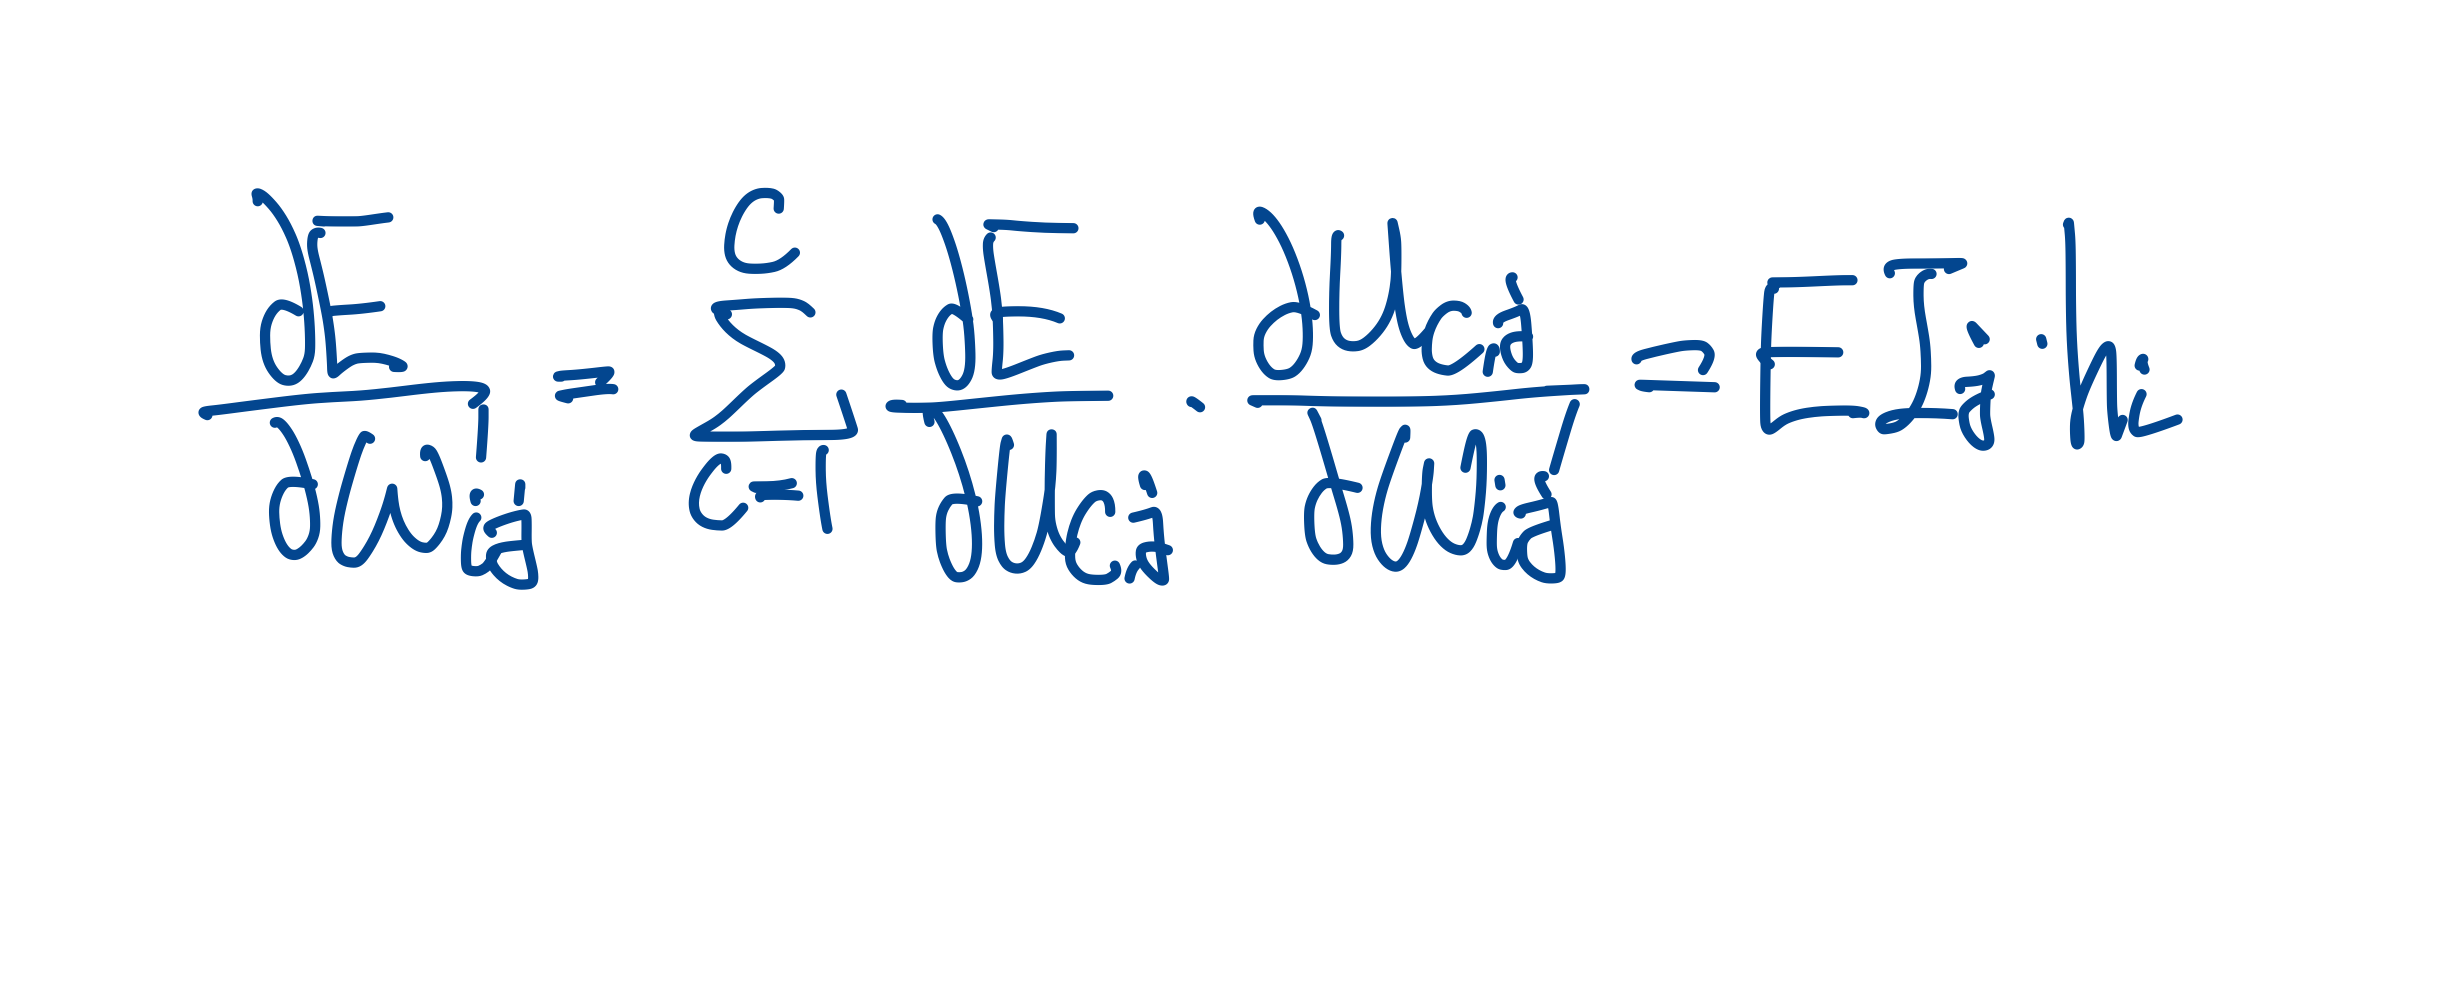 $\frac{\partial E}{\partial w'_{ij}} = \sum_{c=1}^{C} \frac{\partial E}{\partial u_{c,j}} \cdot \frac{\partial u_{c,j}}{\partial w'_{ij}} = EI_j \cdot h_i$